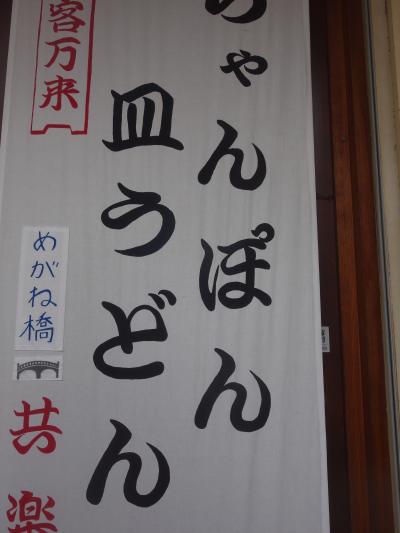 ちゃんぽん
皿うどん
客万来
めがね橋
共楽